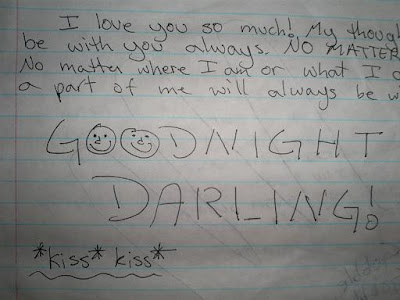 I love you so much! My
be with you always. NO MATTER
No matter where I am or what I
a part of me will always be
GOODNIGHT
DARLING!
*kiss* kiss*